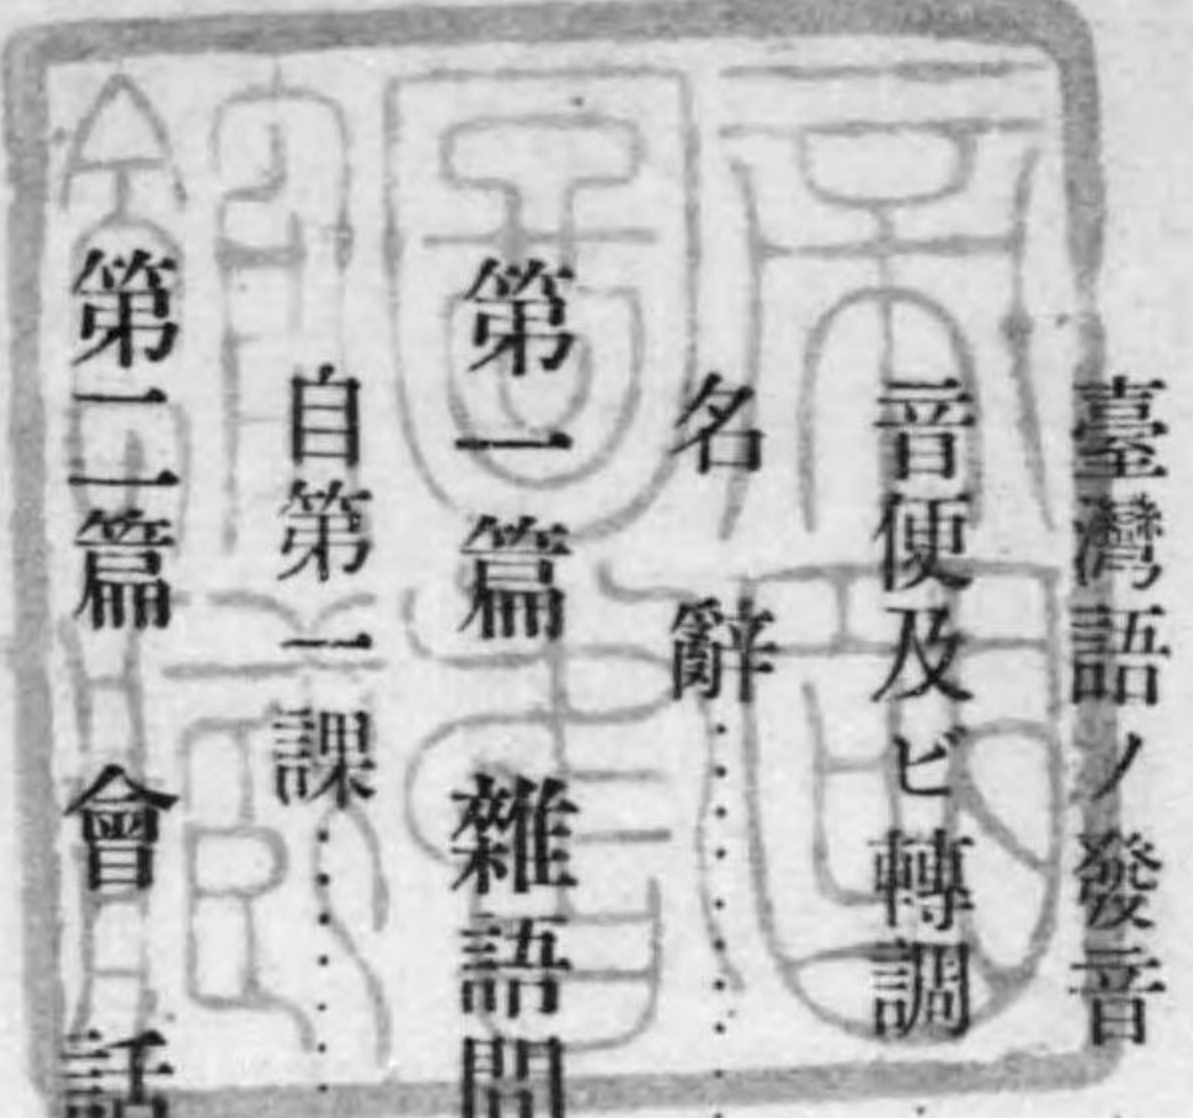 臺灣語ノ發音
音便及ビ轉調
名辭
第一篇 雜語問
自第一課
第二篇 會話